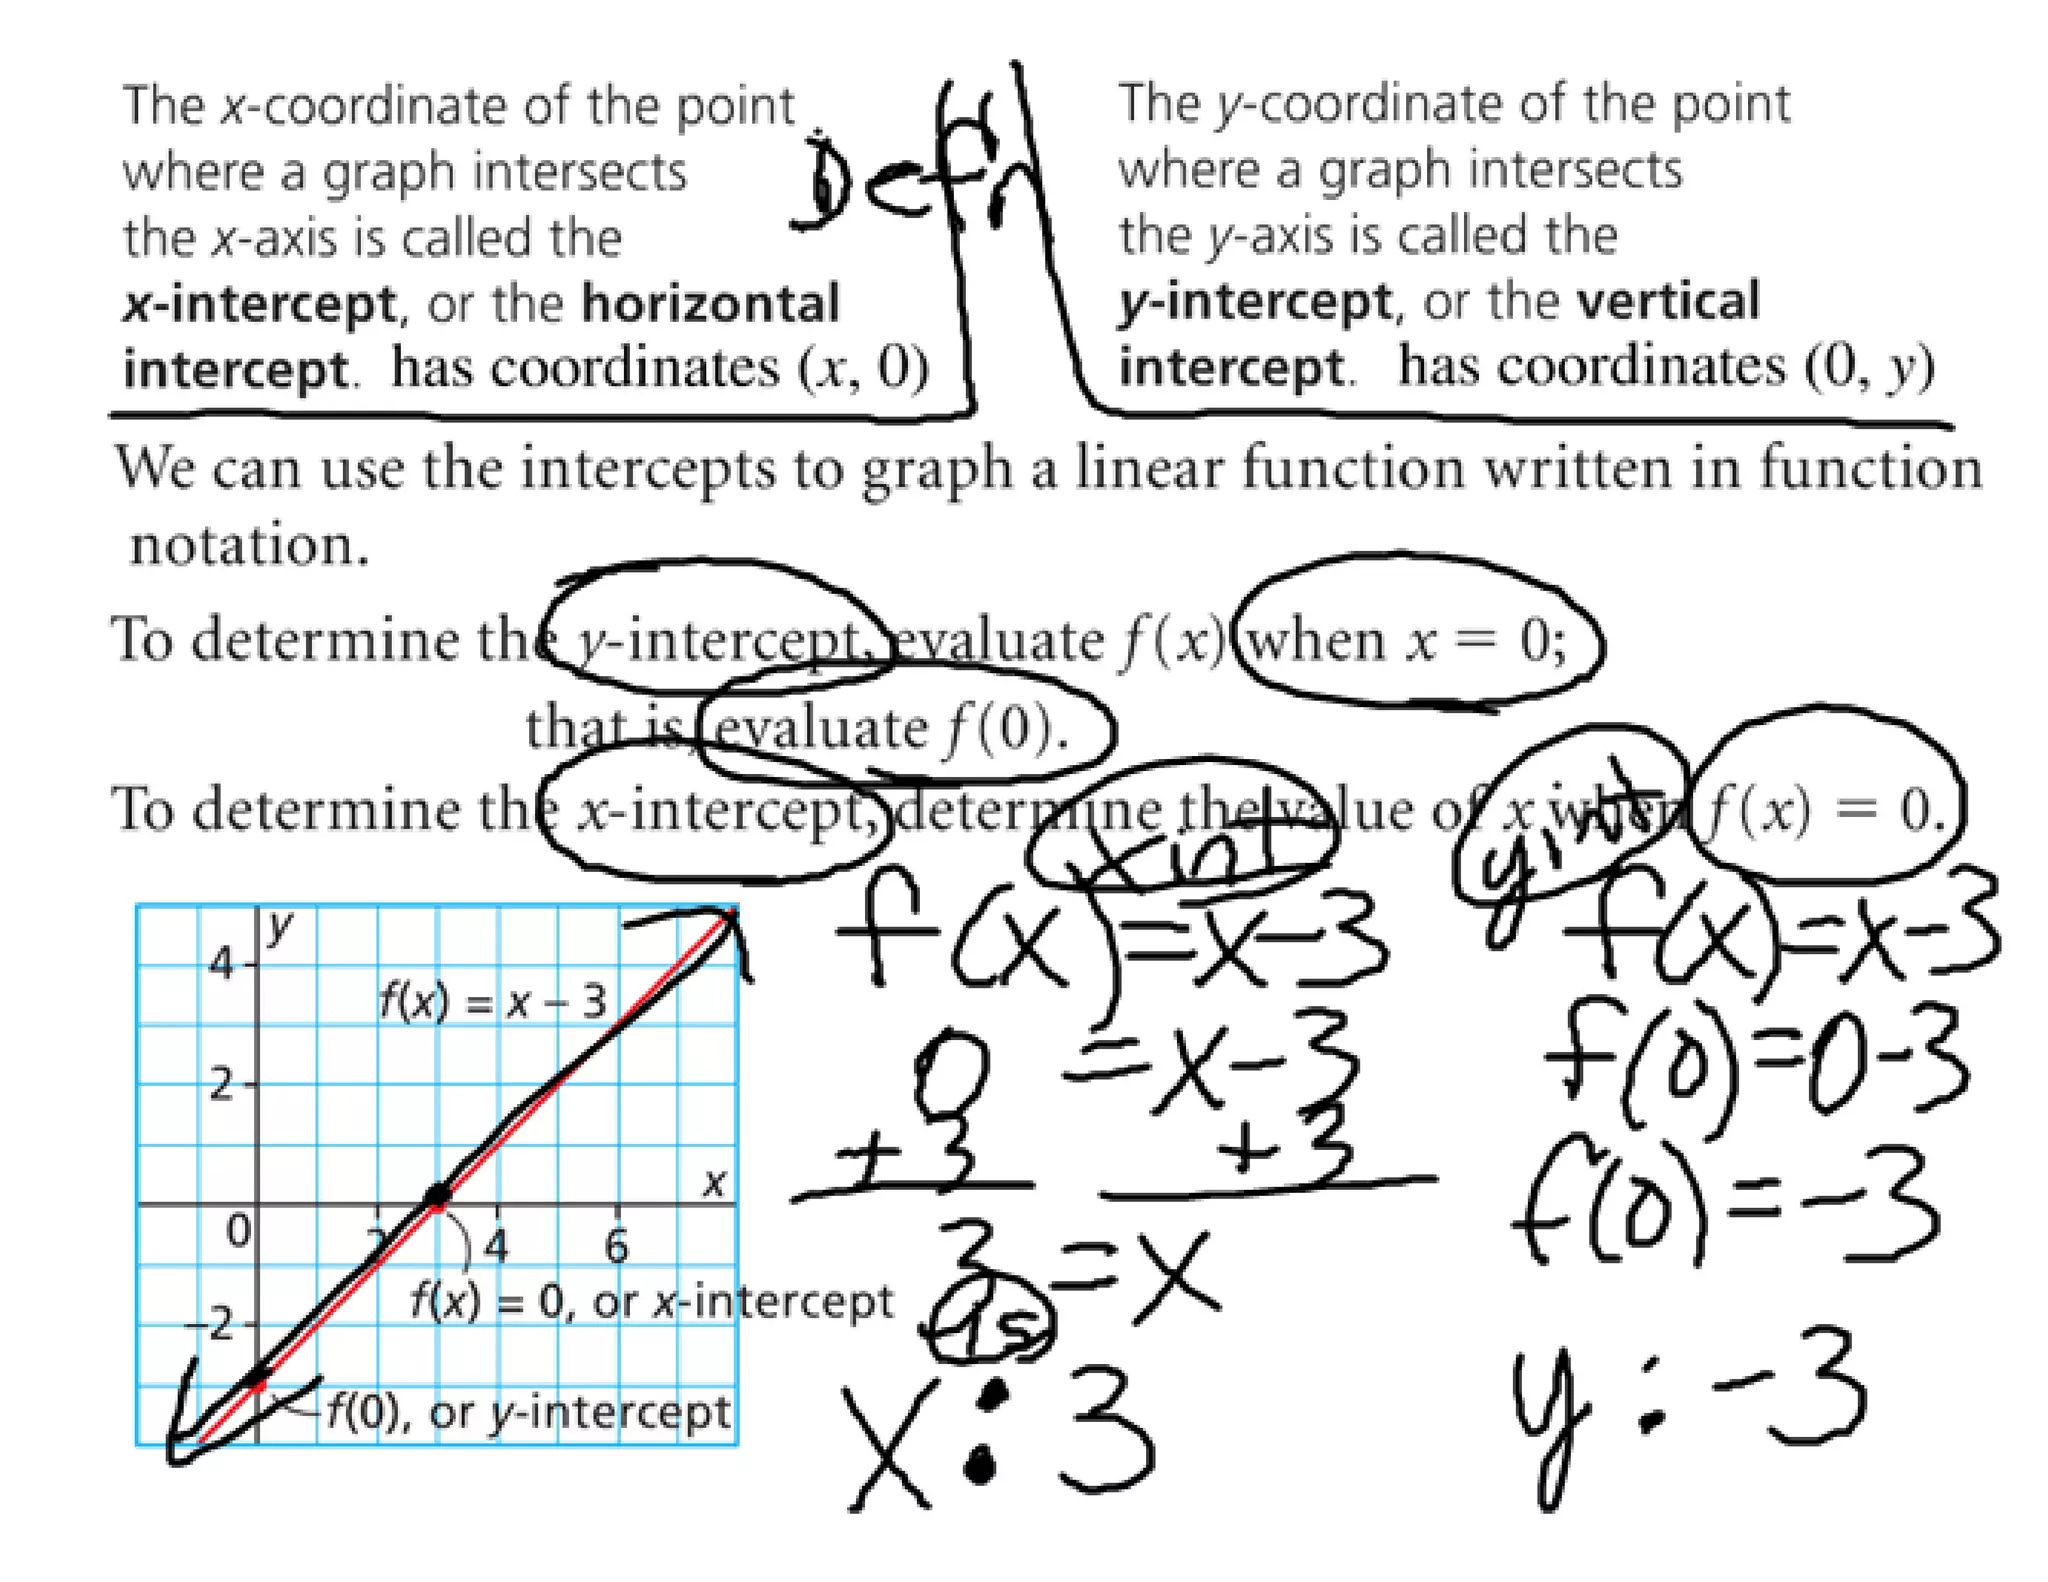 The x-coordinate of the point
where a graph intersects
the x-axis is called the
x-intercept, or the horizontal
intercept. has coordinates (x, 0)
Defn
The y-coordinate of the point
where a graph intersects
the y-axis is called the
y-intercept, or the vertical
intercept. has coordinates (0, y)
We can use the intercepts to graph a linear function written in function
notation.
To determine the y-intercept, evaluate f(x) when x = 0;
that is, evaluate f(0).
To determine the x-intercept, determine the value of x when f(x) = 0.
y
4
f(x) = x – 3
2
x
0
2
4
6
f(x) = 0, or x-intercept
–2
f(0), or y-intercept
x int
f(x) = x - 3
0 = x - 3
+3 +3
3 = x
x : 3
y int
f(x) = x - 3
f(0) = 0 - 3
f(0) = -3
y : -3